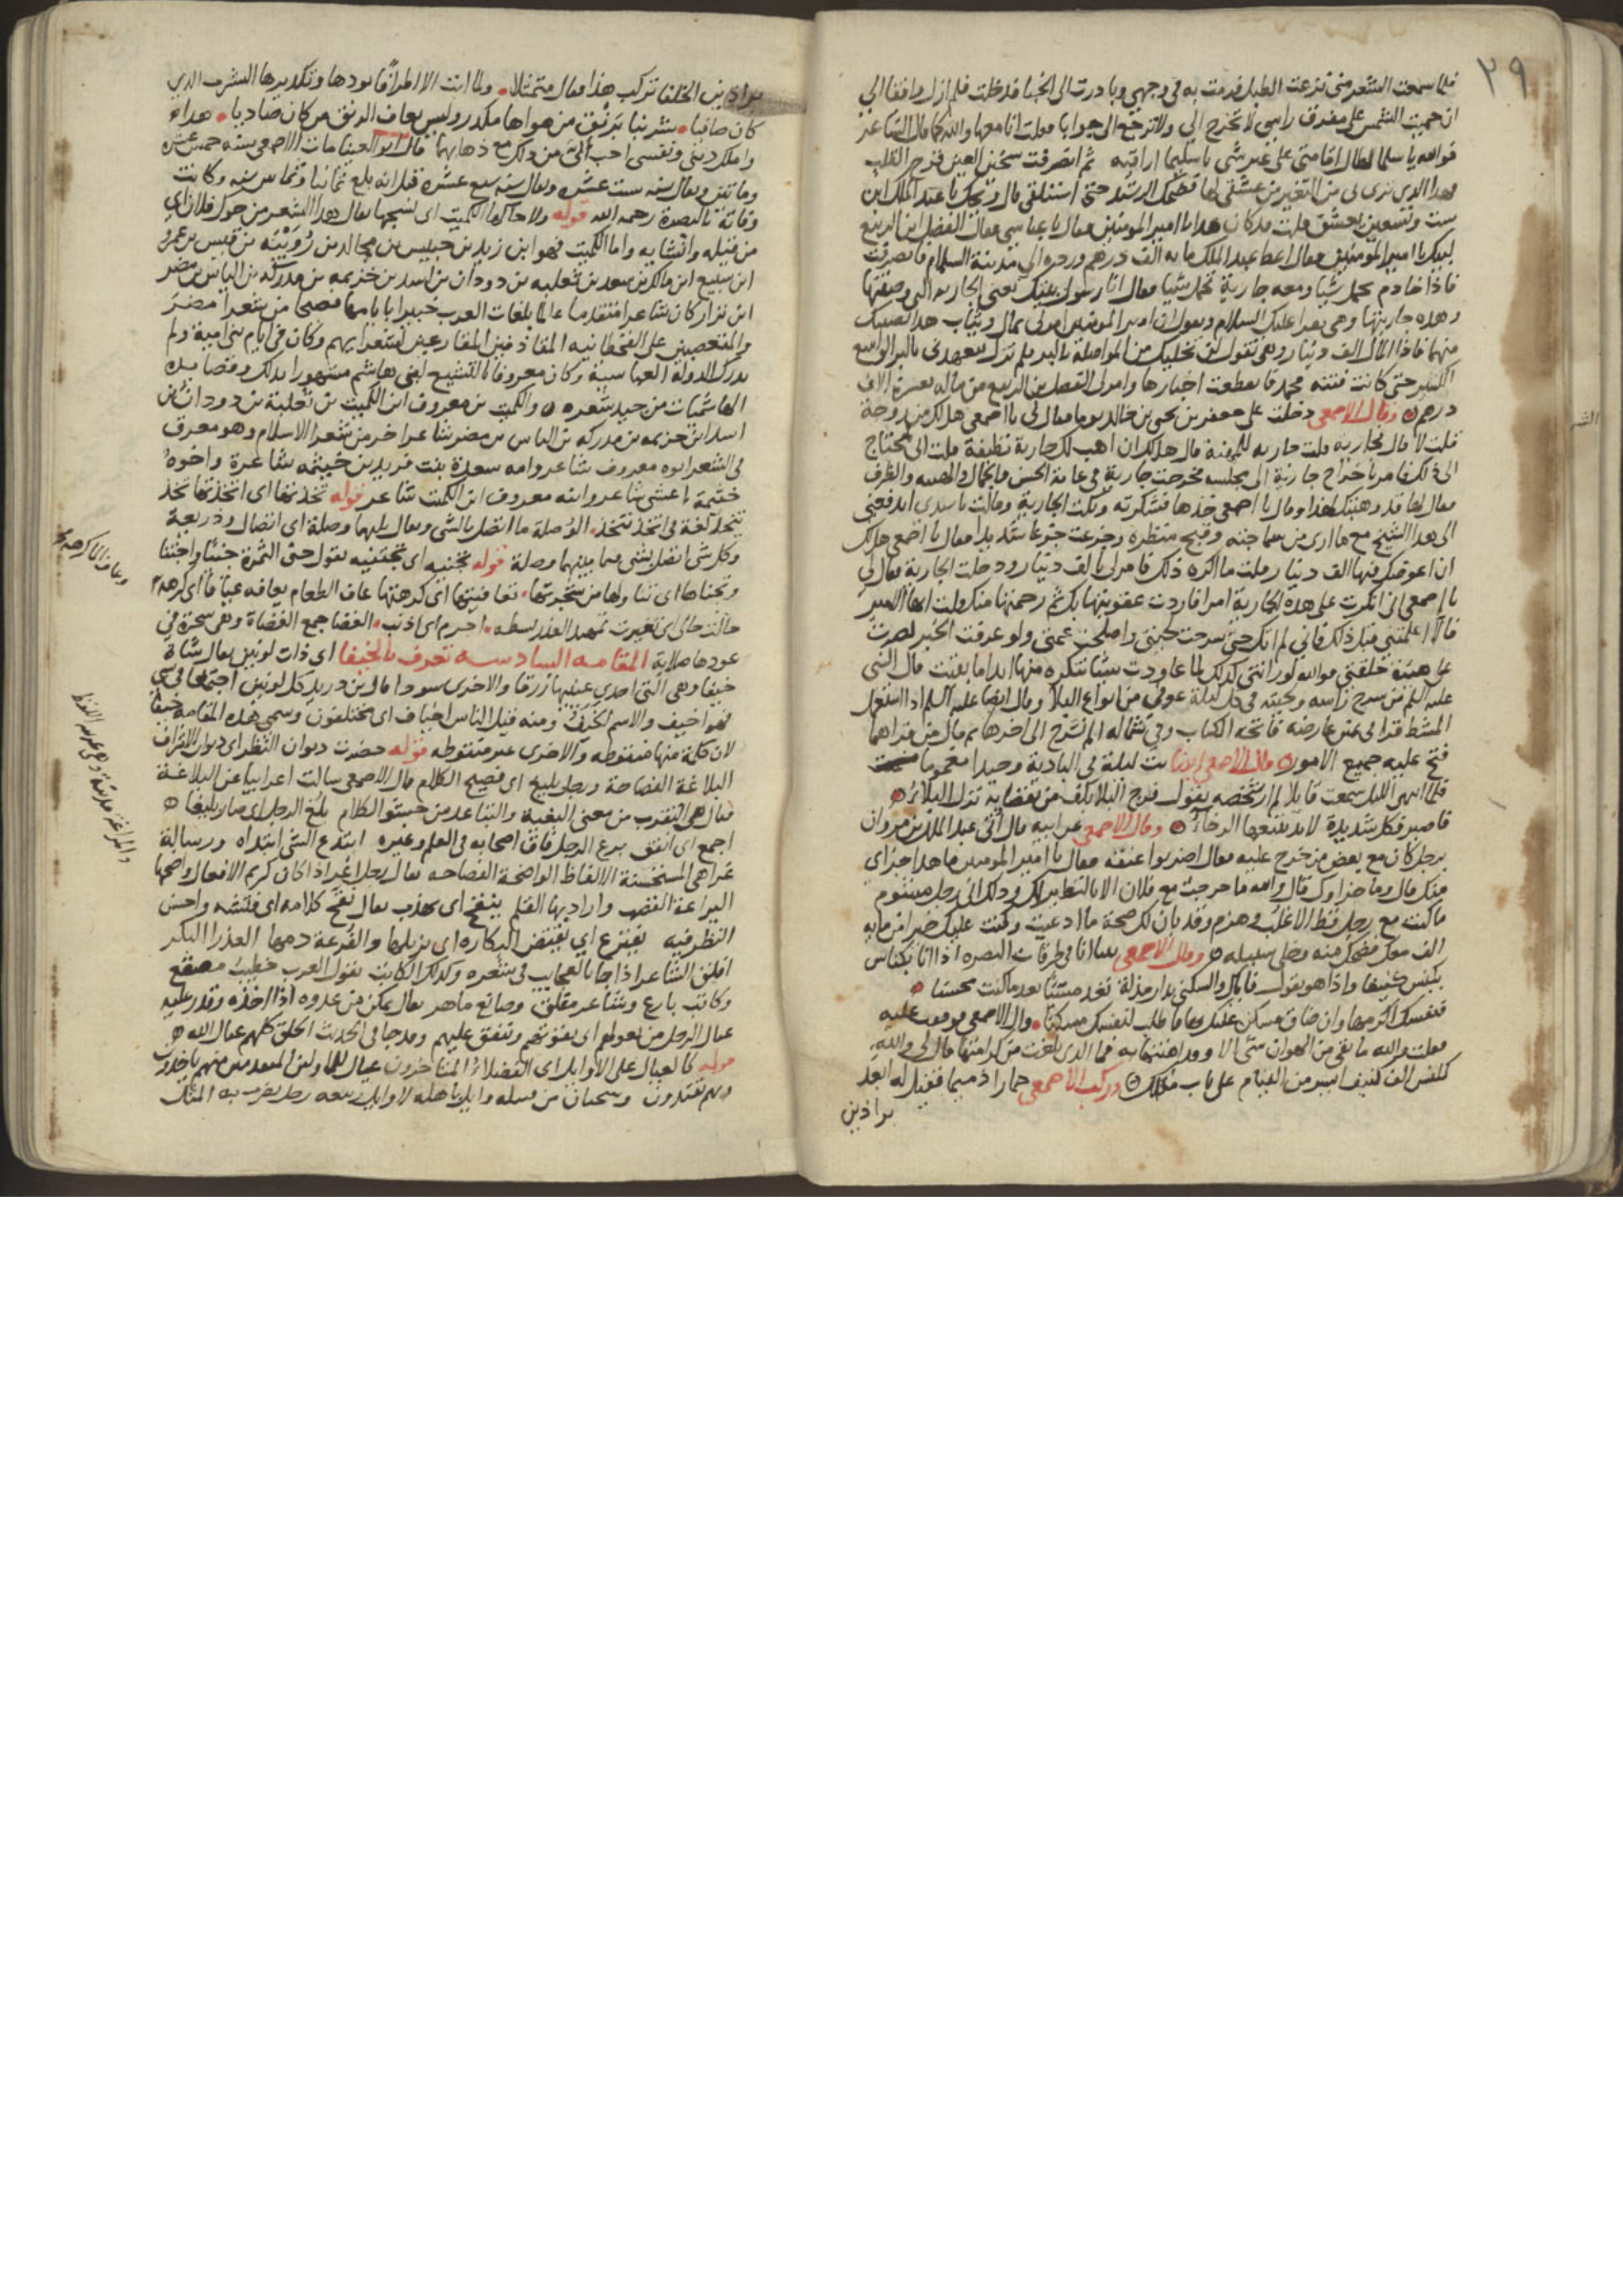 ٢٩
فلما سمعت الشعر مني نزعت الطبل فرمت به في وجهي وبادرت الى الخبا فدخلت فلم ازل واقفا الي
ان حميت الشمس على مفرق راسي لا تخرج الي ولا ترجع الي جوابا فقلت انا معها والله كما قال الشاعر
فوالله يا سلما لطال اقامتي على غير شي يا سليما اراقبه ثم انصرفت سخين العين قرح القلب
فهذا الذي ترى بي من التغير من عشقي لها فضحك الرشيد حتى استلقى قال ويحك يا عبد الملك ابن
ست وتسعين يعشق قلت قد كان هذا يا امير المومنين فقال يا عباسي فقال الفضل ابن الربيع
لبيك يا امير المومنين فقال اعط عبد الملك مايه الف درهم ورده الى مدينة السلام فانصرفت
فاذا خادم يحمل شيا ومعه جارية تحمل شيا فقال انا رسول بنتك يعني الجاريه التي وصفتها
وهذه جاريتها وهي تقرا عليك السلام وتقول ان امير المومنين امر لي بمال وثياب هذا نصيبك
منهما فاذا المال الف دينار وهي تقول لن نخليك من المواصلة بالبر فلم تزل تتعهدني بالبر الواسع
الكثير حتى كانت فتنة محمد فانقطعت اخبارها وامر لي الفضل بن الربيع من ماله بعشرة الاف
درهم وقال الاصمعي دخلت على جعفر بن يحيى بن خالد يوما فقال لي يا اصمعي هل لك من زوجة
قلت لا قال فجاريه قلت جاريه للمهنة قال هل لك ان اهب لك جارية نظيفة قلت اني لمحتاج
الى ذلك فامر باخراج جارية الى مجلسه فخرجت جارية في غاية الحسن والجمال والهيئة والظرف
فقال لها قد وهبتك لهذا وقال يا اصمعي خذها فشكرته وبكت الجارية وقالت يا سيدي اتدفعني
الى هذا الشيخ مع ما ارى من سماجته وقبح منظره وجزعت جزعا شديدا فقال يا اصمعي هل لك
ان اعوضك منها الف دينار قلت ما اكره ذلك فامر لي بالف دينار ودخلت الجارية فقال لي
يا اصمعي اني انكرت على هذه الجارية امرا فاردت عقوبتها بك ثم رحمتها منك قلت ايها الامير
فالا اعلمتني قبل ذلك فاني لم اتك حتى سرحت لحيتي واصلحت عمتي ولو عرفت الخبر لصرت
على هيئة خلقتي فوالله لو راتني كذلك لما عاودت شيئا تنكره منها ابدا ما بقيت قال النبي
عليه السلم من سرح راسه ولحيته في كل ليلة عوفي من انواع البلا وقال ايضا عليه السلم اذا استعمل
المشط قرا في يمين عارضه فاتحة الكتاب وفي شماله الم نشرح الى اخرها ثم قال من قراهما
فتح عليه جميع الامور قال الاصمعي ايضا بت ليلة في البادية وحيدا مغموما
فلما انتهى الليل سمعت قايلا لم ار شخصه يقول فرج البلا يكف من يغضابه نزل البلاء
فاصبر فكل شديدة لابد يتبعها الرخاء وقال الاصمعي عن ابيه قال اتى عبد الملك بن مروان
برجل كان مع بعض من خرج عليه فقال اضربوا عنقه فقال يا امير المومنين ما هذا جزاي
منك قال وما جزاوك قال والله ما خرجت مع فلان الا بالنظر لك وذلك اني رجل ميشوم
ما كنت مع رجل قط الا غلب وهزم وقد بان لك صحة ما ادعيت وكنت عليك خير من مايه
الف معك فضحك منه وخلى سبيله وقال الاصمعي بينا انا في طرقات البصره اذا انا بكناس
يكنس كنيفا واذا هو يقول فاياك والسكنى بدار مذلة تعد مسيئا بعد ما كنت محسنا
فنفسك اكرمها وان ضاق مسكن عليك بها فاطلب لنفسك مسكنا قال الاصمعي فوقفت عليه
فقلت والله ما بقي من الهوان شي الا وقد اهنتها به فما الذي بلغت من كرامتها قال لي والله
لكنس الف كنيف ايسر من القيام على باب مثلك وركب الاصمعي حمارا ذميما فقيل له ابعد
براذين
براذين الخلفا تركب هذا فقال متمثلا ولما ابت الا اطراقا بودها وتكديرها الشرب الذي
كان صافيا شربنا برنق من هواها مكدر وليس يعاف الرنق من كان صاديا هذا
واملك ديني ونفسي احب الي من ذلك مع ذهابهما قال ابو العينا مات الاصمعي سنة خمس عشره
ومائتين ويقال سنه ست عشره ويقال سنه سبع عشرة قيل انه بلغ ثمانيا وثمانين سنه وكانت
وفاته بالبصرة رحمه الله قوله ولا حاكها الكميت اي نسجها يقال هذا الشعر من حوك فلان اي
من قيله وانشايه واما الكميت فهو ابن زيد بن حبيس بن مجالد بن رويبه بن قيس بن عمرو
ابن سبيع ابن مالك بن سعد بن ثعلبه بن دودان بن اسد بن خزيمه بن مدركه بن الياس بن مضر
ابن نزار كان شاعرا متقدما عالما بلغات العرب خبيرا بايامها فصيحا من شعرا مضر
والمتعصبين على القحطانيه المقارعين لشعرايهم وكان في ايام بني امية ولم
يدرك الدولة العباسية وكان معروفا بالتشيع لبني هاشم مشهورا بذلك وقصايده
الهاشميات من جيد شعره والكميت بن معروف ابن الكميت بن ثعلبة بن دودان بن
اسد ابن خزيمه بن مدركه بن الياس بن مضر شاعر اخر من شعرا الاسلام وهو معرق
في الشعر ابوه معروف شاعر وامه سعدة بنت فريد بن خيثمه شاعرة واخوه
خثيمة اعشى شاعر وابنه معروف ابن الكميت شاعر قوله تخذتها اي اتخذتها تخذ
يتخذ لغة في اتخذ يتخذ الوصلة ما اتصل بالشي ويقال بينهما وصلة اي اتصال وذريعة
وكل شي اتصل بشي فما بينهما وصلة قوله تجنيه اي تجتنيه تقول جنى الثمرة جنيا واجتنا
وتجناها اي تناولها من شجرتها تعافيتها اي كرهتها عاف الطعام يعافه عيافا اي كرهه
حالت حالي اي تغيرت تمهيد العذر بسطه اجرم اي اذنب الغضا جمع الغضاة وهي شجرة في
عودها صلابة المقامه السادسه تعرف بالخيفا اي ذات لونين يقال شاة
خيفا وهي التي احدى عينيها زرقا والاخرى سودا قال ابن دريد كل لونين اجتمعا في شي
فهو اخيف والاسم الخيف ومنه قيل الناس اخياف اي مختلفون وسمى هذه المقامه خيفا
لان كلمة منها منقوطه والاخرى غير منقوطه قوله حضرت ديوان النظر اي ديوان الاشراف
البلاغة الفصاحة ورجل بليغ اي فصيح الكلام قال الاصمعي سالت اعرابيا عن البلاغة
فقال هي التقرب من معنى البغية والتباعد من حشو الكلام بلغ الرجل اي صار بليغا
اجمع اي اتفق برع الرجل فاق اصحابه في العلم وغيره ابتدع الشي ابتداه ورسالة
غرا هي المستحسنة الالفاظ الواضحة الفصاحه يقال رجل اغر اذا كان كريم الافعال واضحها
اليراعة القصب واراد بها القلم ينقح اي يهذب يقال نقح كلامه اي فتشه واحسن
النظر فيه يفترع اي يفتض البكاره اي يزيلها والفرعة دمها العذرا البكر
افلق الشاعر اذا جا بالعجايب في شعره وكذلك الكاتب تقول العرب خطيب مصقع
وكاتب بارع وشاعر مفلق وصانع ماهر يقال تمكن من عدوه اذا اخذه وقدر عليه
عيال الرجل من يعولهم اي يقوتهم وينفق عليهم وقد جا في الحديث الخلق كلهم عيال الله
قوله كالعيال على الاوايل اي الفضلاء المتاخرون عيال للاولين المتقدمين منهم ياخذون
وبهم يقتدون وسحبان من قبيله وايل باهله لا وايل ربيعه رجل يضرب به المثل